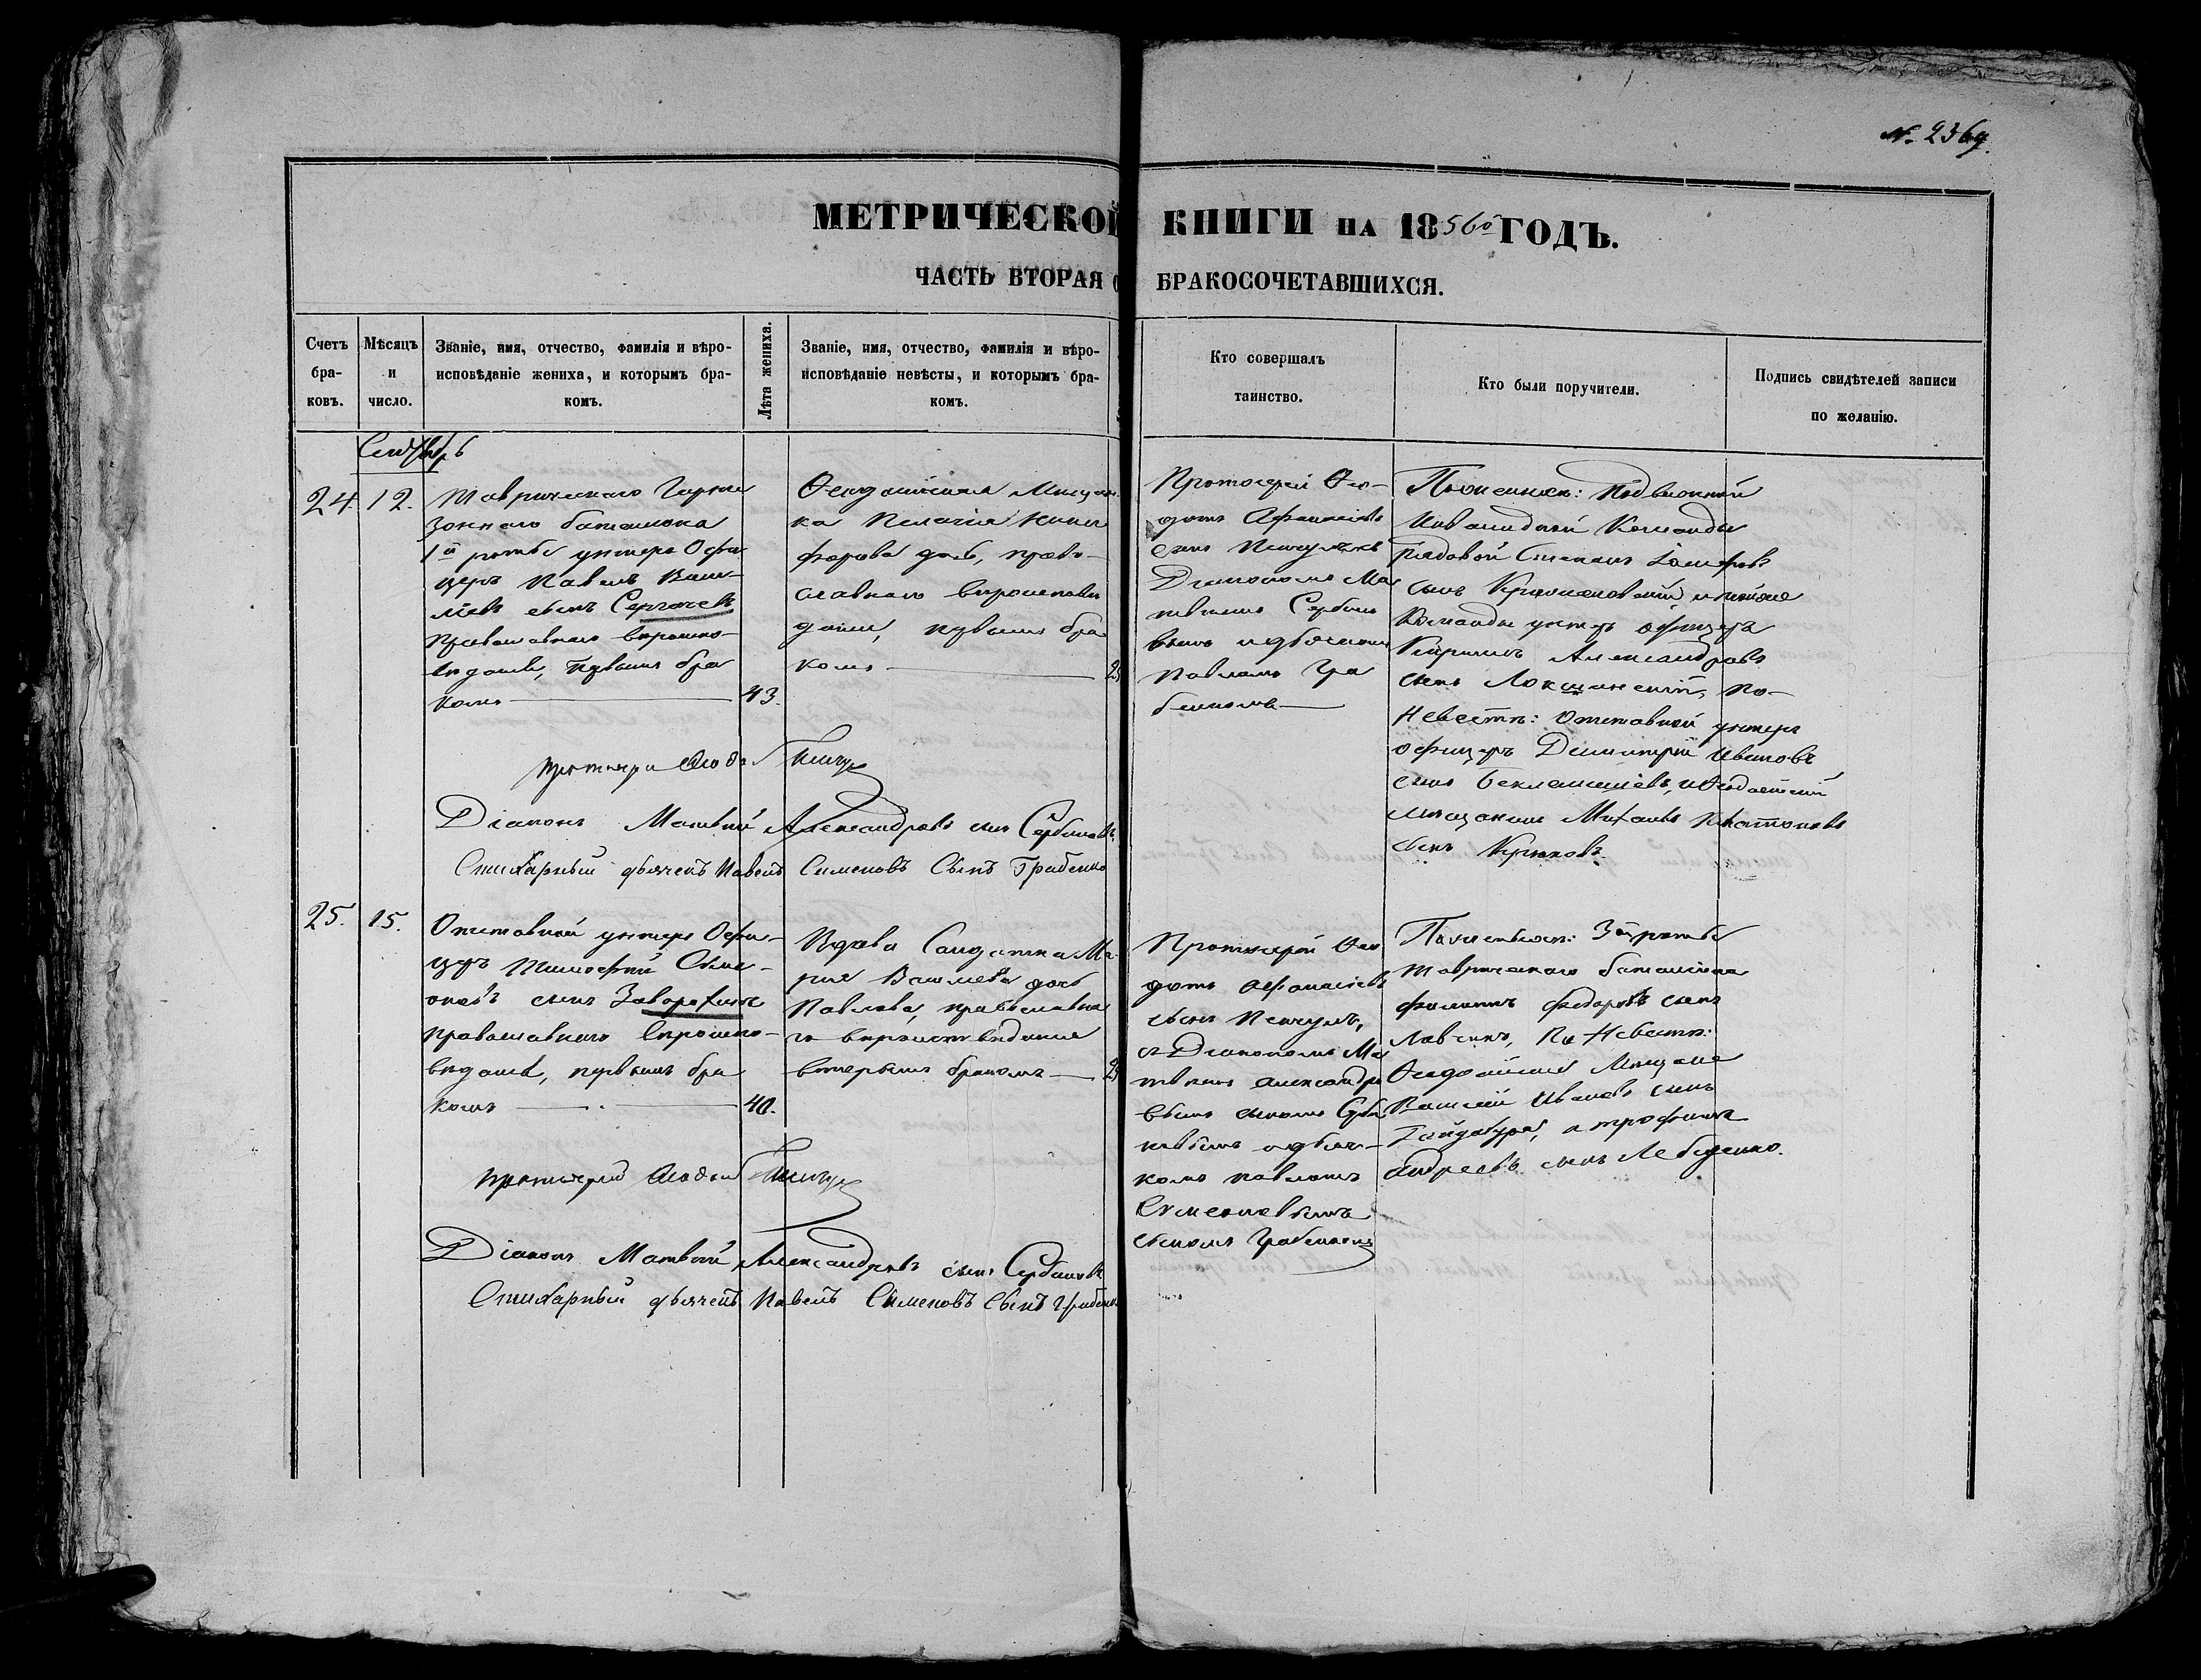 № 2369.
МЕТРИЧЕСКОЙ КНИГИ НА 1856й ГОДЪ.
ЧАСТЬ ВТОРАЯ О БРАКОСОЧЕТАВШИХСЯ.
Счетъ бра-
ковъ.
Мѣсяцъ
и
число.
Званіе, имя, отчество, фамилія и вѣро-
исповѣданіе жениха, и которымъ бра-
комъ.
Лѣта жениха.
Званіе, имя, отчество, фамилія и вѣро-
исповѣданіе невѣсты, и которымъ бра-
комъ.
Кто совершалъ
таинство.
Кто были поручители.
Подпись свидѣтелей записи
по желанію.
Сентябрь
24. 12.
Таврическаго Гарни
зоннаго баталіона
1й роты унтеръ Офи
церъ Павелъ Васи-
ліевъ сынъ Сергачевъ
православнаго вѣроиспо-
вѣданія, первымъ бра
комъ
43.
Ѳеодосійская Мещан
ка Пелагія Ники
форова дочь, право-
славнаго вѣроисповѣ
данія, первымъ бра
комъ
Протоіерей Ѳео-
дотъ Афанасіевъ
сынъ Пенчулъ съ
Діакономъ Ма
твѣемъ Сербино
вымъ и дьячкомъ
Павломъ Гра
бенкомъ
По женихѣ: Подвижной
Инвалидной Команды
Рядовой Степанъ
сынъ и тойже
Команды унтеръ офицеръ
Александровъ
сынъ Локшинскій, по
Невѣстѣ: Отставной унтеръ
офицеръ Димитрій Ивановъ
сынъ Беклемишевъ, и Ѳеодосійскій
мещанинъ Михаилъ Платоновъ
сынъ Крюковъ.
Протоіерей Ѳеодотъ Пенчулъ
Діаконъ Матвѣй Александровъ сынъ Сербиновъ
Стихарный дьячекъ Павелъ Сименовъ Сынъ Грабенко
25. 15.
Отставной унтеръ Офи-
церъ Тимофей Симе-
оновъ сынъ Заворохинъ
православнаго вѣроиспо-
вѣданія, первымъ бра
комъ
40.
Вдова Солдатка Ма-
рія Васильева дочь
Павлова, православна
го вѣроисповѣданія
вторымъ бракомъ
Протоіерей Ѳео
дотъ Афанасіевъ
сынъ Пенчулъ,
съ Діакономъ Ма
твѣемъ Александро
вымъ сыномъ Серби
новымъ и дьяч-
комъ Павломъ
Сименовымъ
сыномъ Грабенкомъ
По женихѣ: 3й роты
Таврическаго баталіона
Филиппъ Федоровъ сынъ
По Невѣстѣ:
Ѳеодосійскіе Мещане
Василій Ивановъ сынъ
Гайдабура, и Трофимъ
Андреевъ сынъ Лебеденко.
Протоіерей Ѳеодотъ Пенчулъ
Діаконъ Матвѣй Александровъ сынъ Сербиновъ
Стихарный дьячекъ Павелъ Сименовъ Сынъ Грабенко